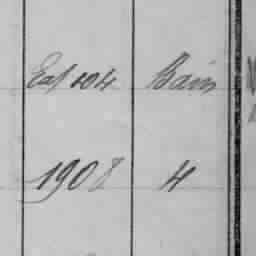 Eaf 104 Bain
1908 4